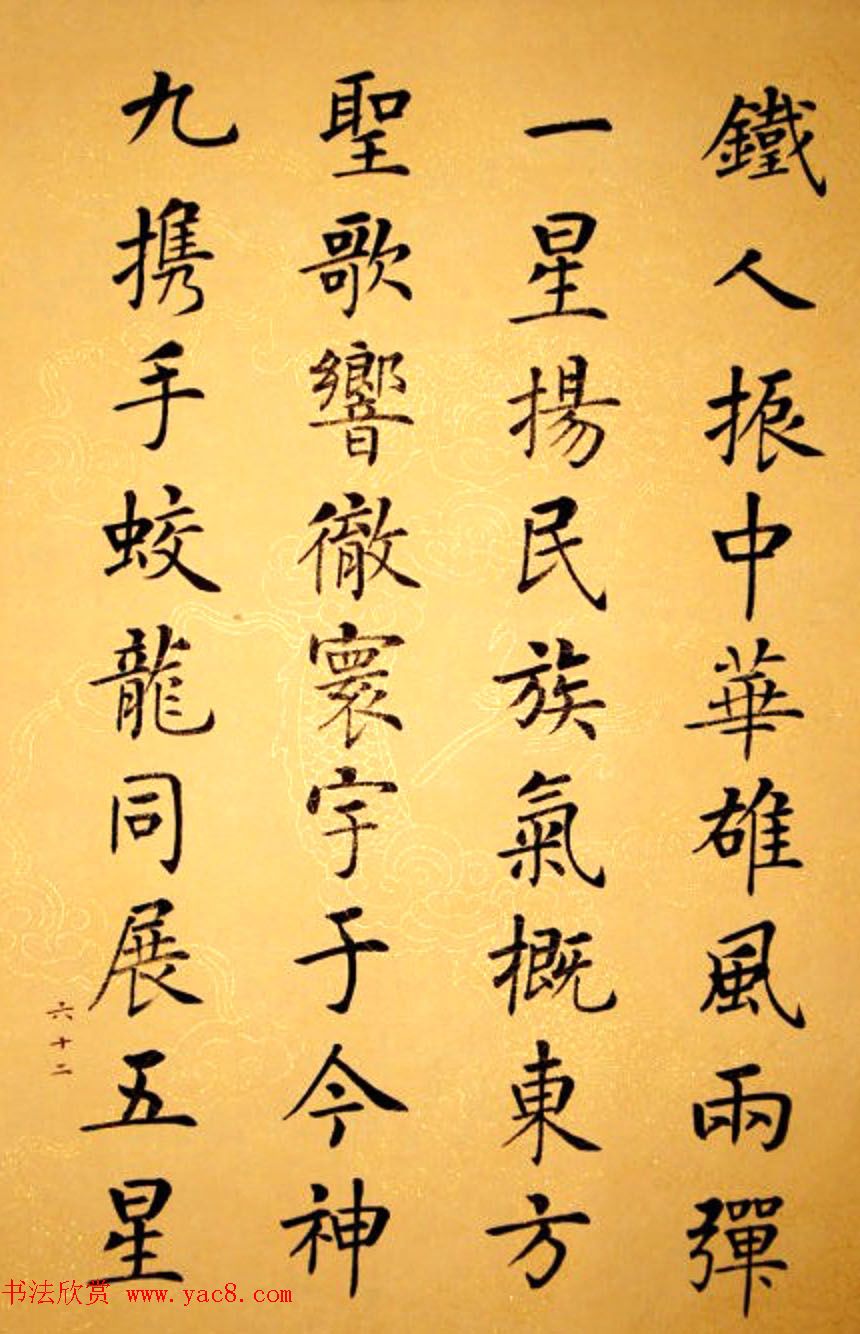 鐵人振中華雄風兩彈
一星揚民族氣概東方
聖歌響徹寰宇于今神
九攜手蛟龍同展五星
六十二
书法欣赏 www.yac8.com